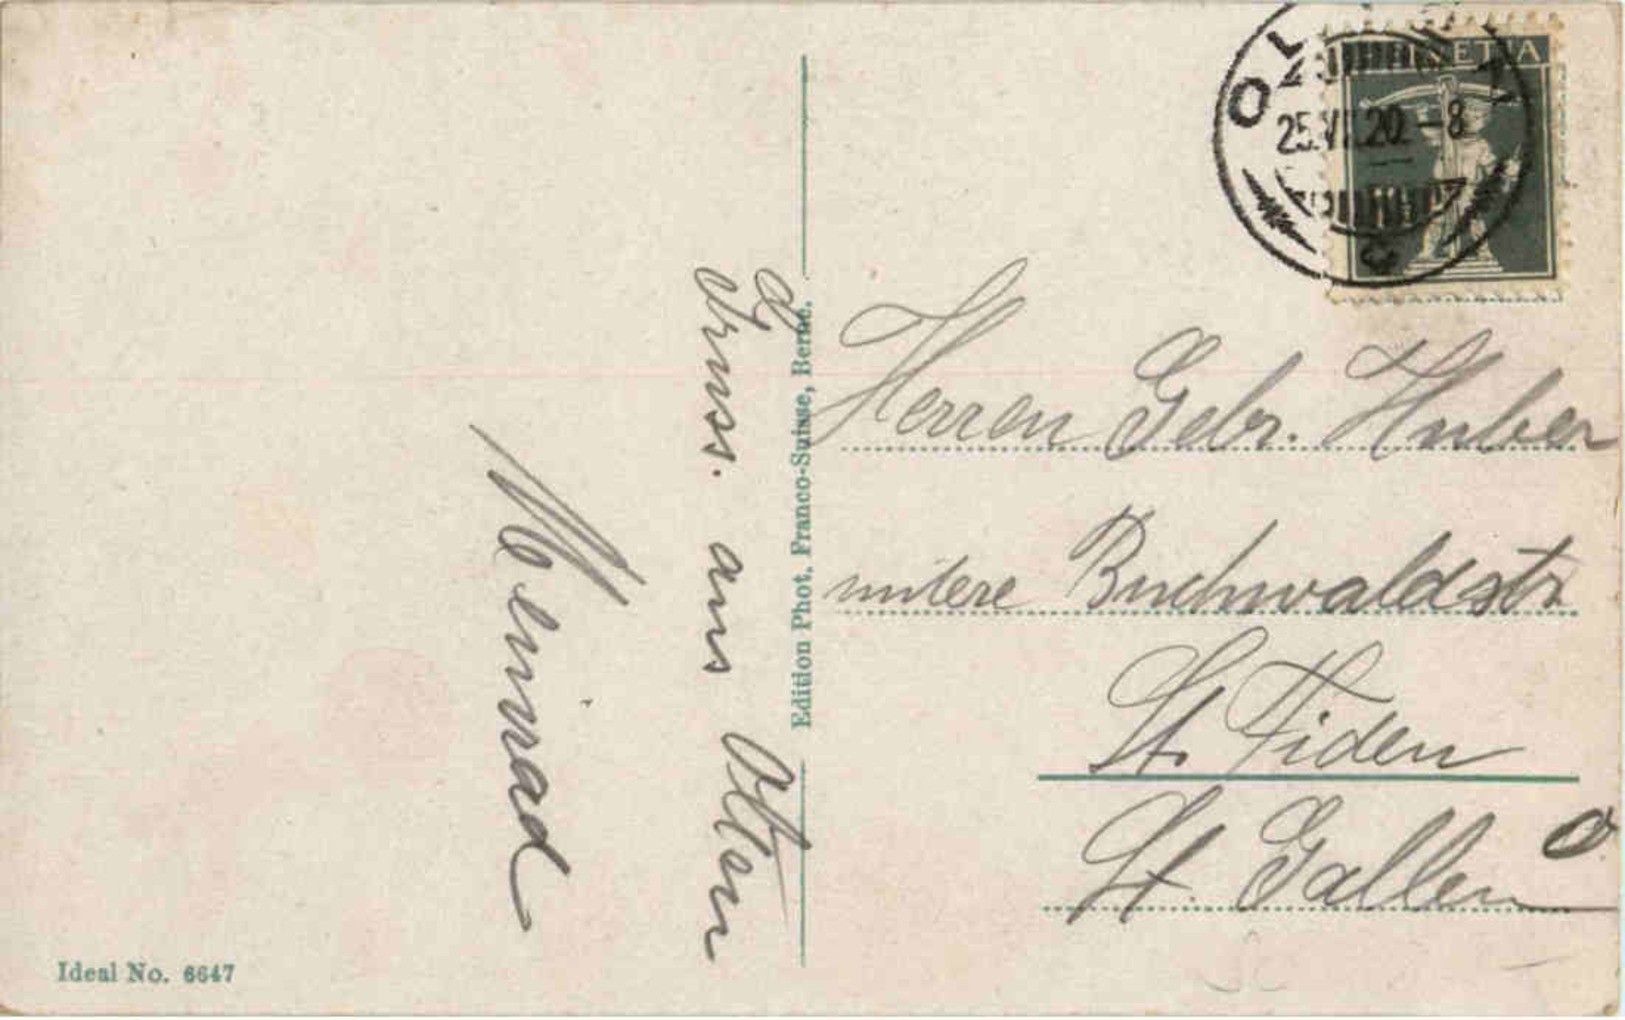 Gruss. aus Olten
Meinrad
Ideal No. 6647
Edition Phot. Franco-Suisse, Berne.
HELVETIA
OLTEN 1
25.VI.20.-8
Herren Gebr. Huber
untere Buchwaldstr
St. Fiden
St. Gallen O